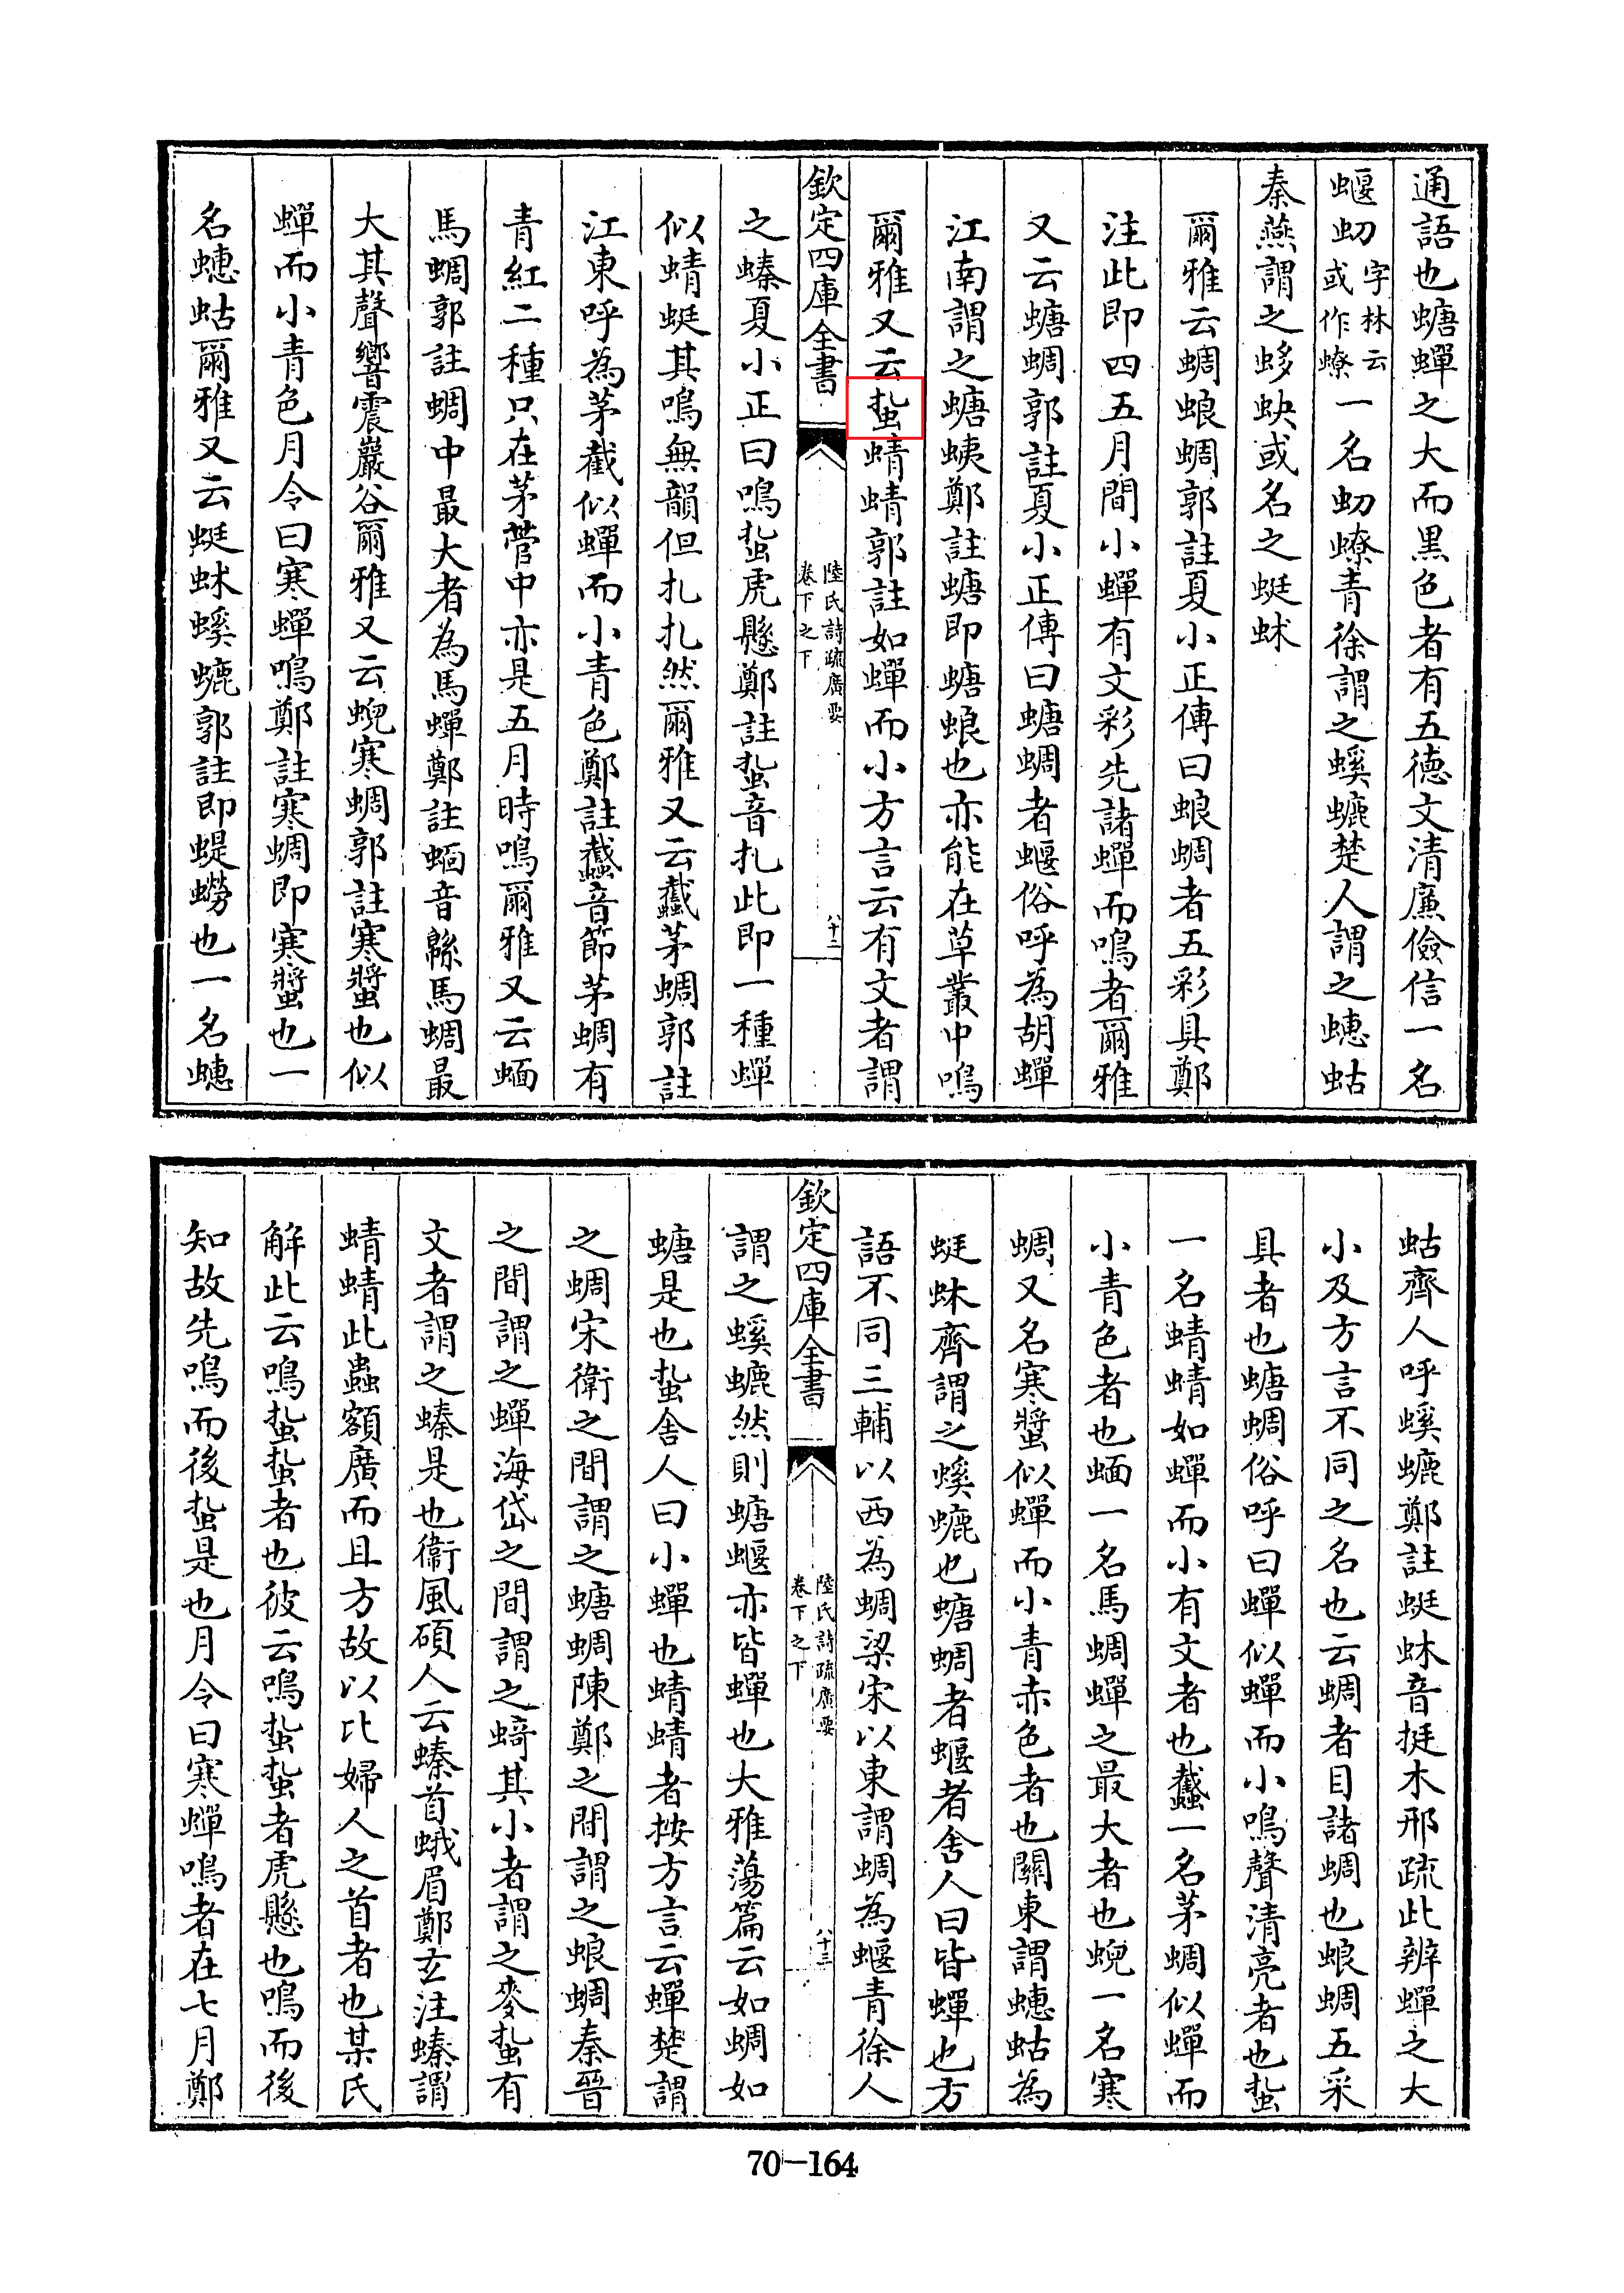 通語也螗蟬之大而黒色者有五徳文清廉儉信一名
蝘虭字林云或作蟟一名虭蟟青徐謂之螇螰楚人謂之蟪蛄
秦燕謂之蛥蚗或名之蜓蚞
爾雅云蜩蜋蜩郭註夏小正傳曰蜋蜩者五彩具鄭
注此即四五月間小蟬有文彩先諸蟬而鳴者爾雅
又云螗蜩郭註夏小正傳曰螗蜩者蝘俗呼為胡蟬
江南謂之螗蛦鄭註螗即螗蜋也亦能在草叢中鳴
爾雅又云蚻蜻蜻郭註如蟬而小方言云有文者謂
欽定四庫全書
陸氏詩疏廣要
卷下之下
八十二
之螓夏小正曰鳴蚻虎懸鄭註蚻音扎此即一種蟬
似蜻蜓其鳴無韻但扎扎然爾雅又云蠽茅蜩郭註
江東呼為茅截似蟬而小青色鄭註蠽音節茅蜩有
青紅二種只在茅菅中亦是五月時鳴爾雅又云蝒
馬蜩郭註蜩中最大者為馬蟬鄭註蝒音緜馬蜩最
大其聲響震巖谷爾雅又云蜺寒蜩郭註寒螿也似
蟬而小青色月令曰寒蟬鳴鄭註寒蜩即寒螿也一
名蟪蛄爾雅又云蜓蚞螇螰郭註即蝭蟧也一名蟪
蛄齊人呼螇螰鄭註蜓蚞音挺木邢疏此辨蟬之大
小及方言不同之名也云蜩者目諸蜩也蜋蜩五采
具者也螗蜩俗呼曰蟬似蟬而小鳴聲清亮者也蚻
一名蜻蜻如蟬而小有文者也蠽一名茅蜩似蟬而
小青色者也蝒一名馬蜩蟬之最大者也蜺一名寒
蜩又名寒螿似蟬而小青赤色者也關東謂蟪蛄為
蜓蚞齊謂之螇螰也螗蜩者蝘者舍人曰皆蟬也方
語不同三輔以西為蜩梁宋以東謂蜩為蝘青徐人
欽定四庫全書
陸氏詩疏廣要
卷下之下
八十三
謂之螇螰然則螗蝘亦皆蟬也大雅蕩篇云如蜩如
螗是也蚻舍人曰小蟬也蜻蜻者按方言云蟬楚謂
之蜩宋衛之間謂之螗蜩陳鄭之間謂之蜋蜩秦晉
之間謂之蟬海岱之間謂之蜻其小者謂之麥蚻有
文者謂之螓是也衞風碩人云螓首蛾眉鄭玄注螓謂
蜻蜻此蟲額廣而且方故以比婦人之首者也某氏
解此云鳴蚻蚻者也彼云鳴蚻蚻者虎懸也鳴而後
知故先鳴而後蚻是也月令曰寒蟬鳴者在七月鄭
70-164